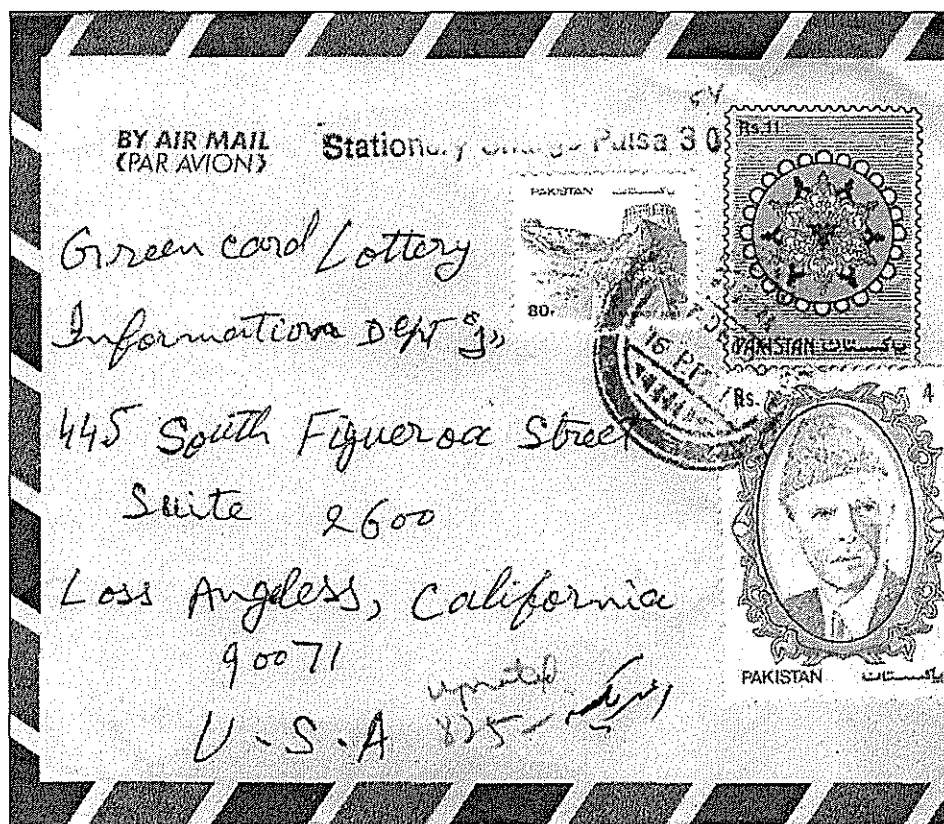 BY AIR MAIL
(PAR AVION)
Paisa 30
Rs. 11
PAKISTAN پاکستان
80P
PAKISTAN پاکستان
Rs. 4
PAKISTAN پاکستان
Green card Lottery
Information Dept "J"
445 South Figueroa Street
Suite 2600
Loss Angeless, California
90071
U.S.A